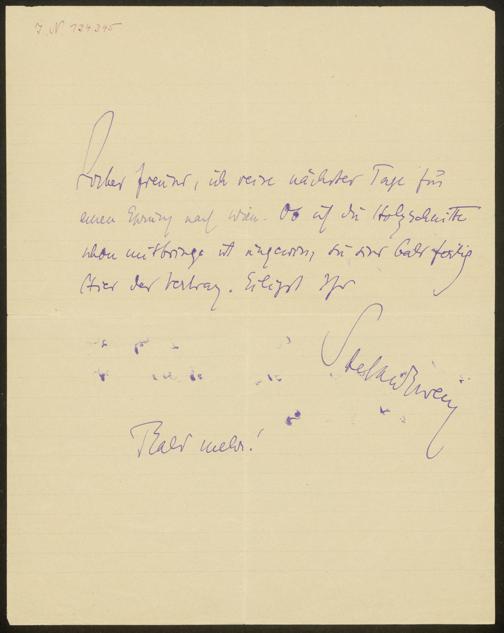 I. N. 194345
Lieber Freund, ich reise nächster Tage für
einen Sprung nach Wien. Ob ich die Holzschnitte
schon mitbringe ist ungewiss, sie sind bald fertig
Hier der Vertrag. Eiligst Ihr
Stefan Zweig
Bald mehr!